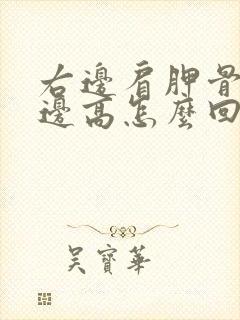 右邊肩胛骨
邊高怎麼回
吳寶華